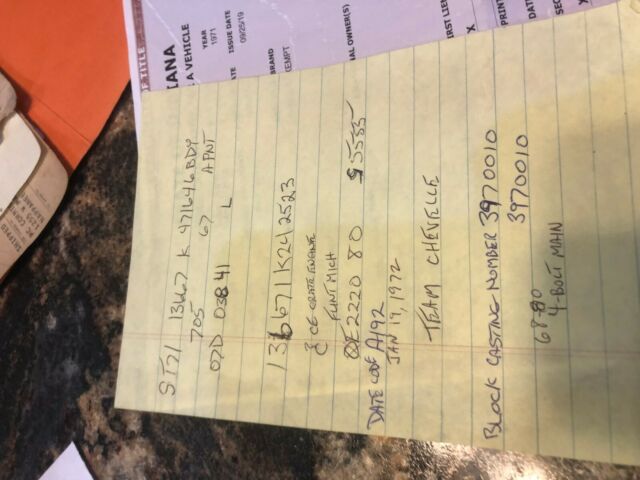 OF TITLE
IANA
A VEHICLE
YEAR
1971
ISSUE DATE
09/25/19
BRAND
EMPT
AL OWNER(S)
IRST LIEN
X
PRINT
DAT
ST71 13667 K 971646 BDY
705 67 A PNT
07D 03841 L
136671K242523
CE-CRATE ENGINE
FLINT MICH
2220 80
DATE CODE A192
JAN 19, 1972
TEAM CHEVELLE
BLOCK CASTING NUMBER 3970010
3970010
68-80
4-BOLT MAIN